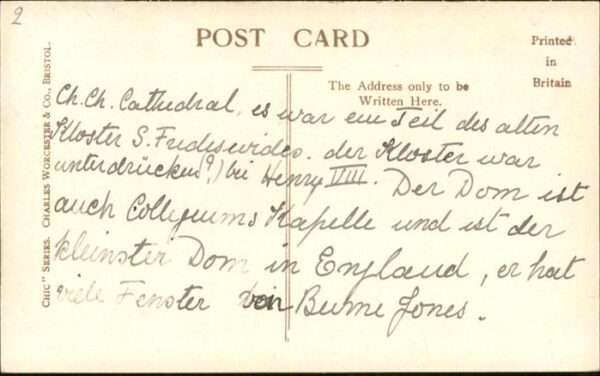 2
POST CARD
Printed
in
Britain
The Address only to be
Written Here.
"CHIC" SERIES. CHARLES WORCESTER & CO., BRISTOL.
Ch. Ch. Cathedral, es war ein Teil des alten
Kloster S. Frideswides. der Kloster war
unterdrücken(?) bei Henry VIII. Der Dom ist
auch Collegiums Kapelle und ist der
kleinster Dom in England, er hat
viele Fenster von Burne Jones.